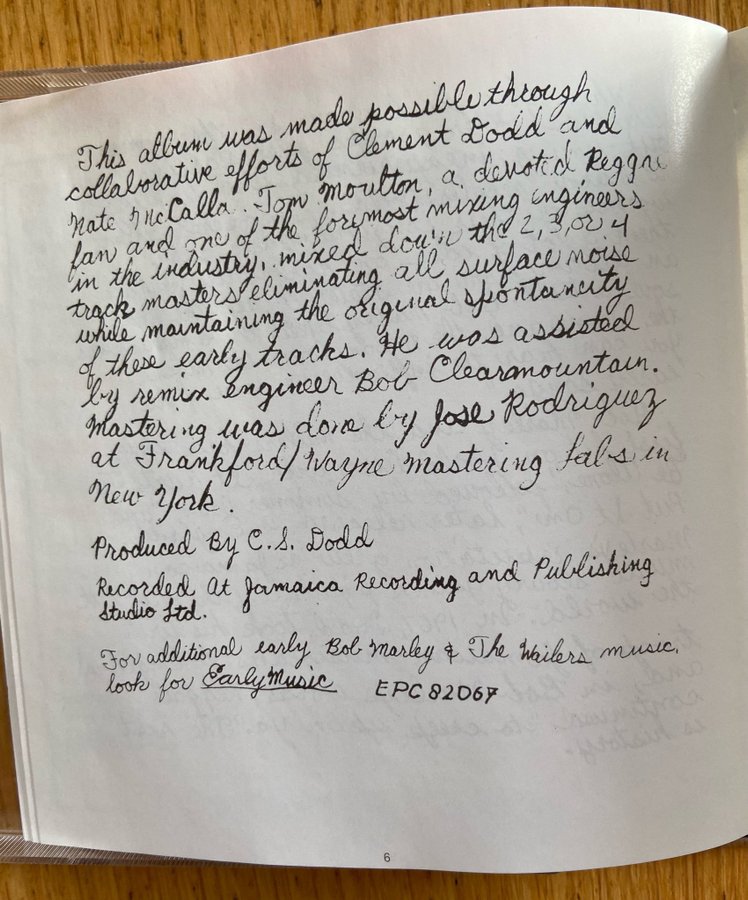 This album was made possible through
collaborative efforts of Clement Dodd and
Nate McCalla. Tom Moulton, a devoted Reggae
fan and one of the foremost mixing engineers
in the industry, mixed down the 2, 3, or 4
track masters eliminating all surface noise
while maintaining the original spontaneity
of these early tracks. He was assisted
by remix engineer Bob Clearmountain.
Mastering was done by Jose Rodriguez
at Frankford/Wayne Mastering Labs in
New York.
Produced By C.S. Dodd
Recorded At Jamaica Recording and Publishing
Studio Ltd.
For additional early Bob Marley & The Wailers music,
look for Early Music EPC 82067
6